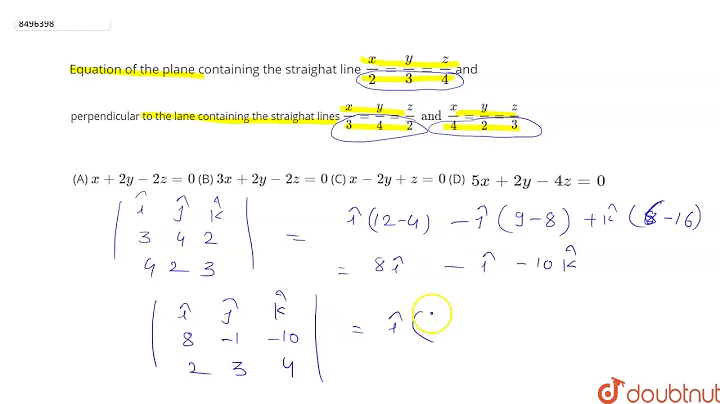 8496398
Equation of the plane containing the straighat line x/2 = y/3 = z/4 and
perpendicular to the lane containing the straighat lines x/3 = y/4 = z/2 and x/4 = y/2 = z/3
(A) x + 2y − 2z = 0 (B) 3x + 2y − 2z = 0 (C) x − 2y + z = 0 (D) 5x + 2y − 4z = 0
| î ĵ k̂ | = î (12-4) - ĵ (9-8) + k̂ (6-16)
| 3 4 2 |
| 4 2 3 | = 8î - ĵ - 10k̂
| î ĵ k̂ |
| 8 -1 -10 | = î (
| 2 3 4 |
doubtnut